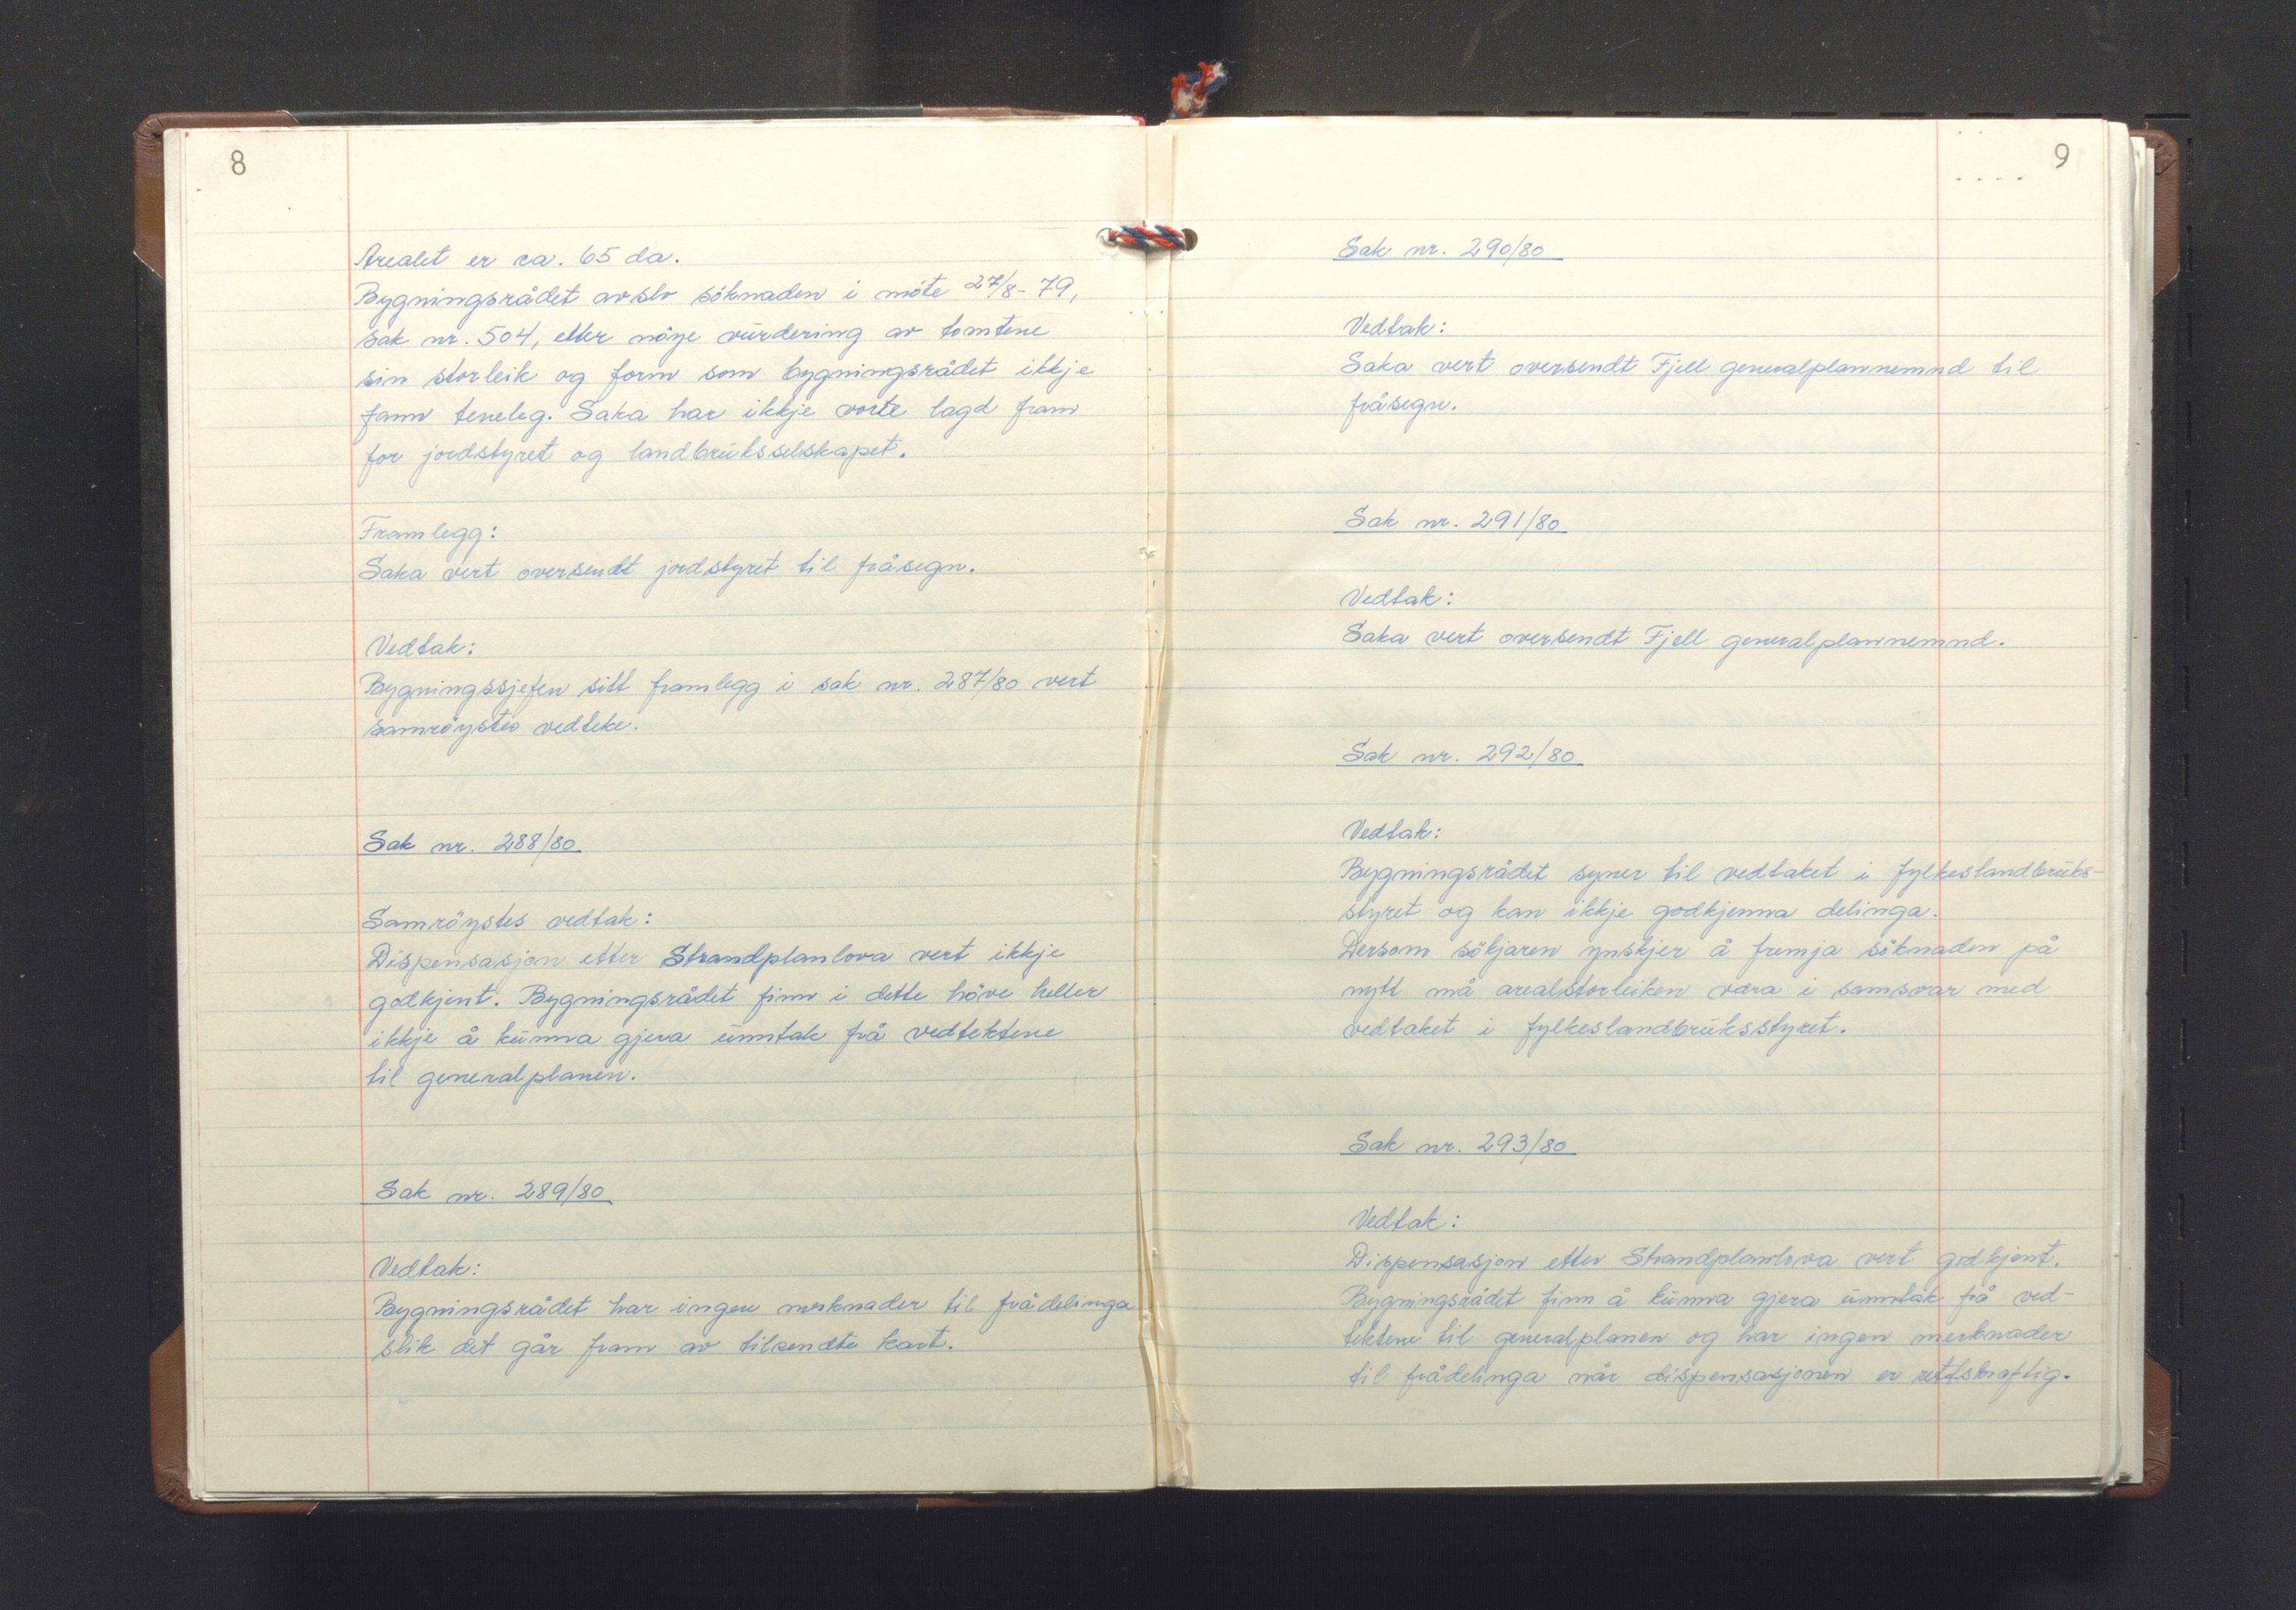 8
Arealet er ca. 65 da.
Bygningsrådet avslo söknaden i möte 27/8-79,
sak nr. 504, etter nöye vurdering av tomtene
sin storleik og form som bygningsrådet ikkje
fann teneleg. Saka har ikkje vorte lagd fram
for jordstyret og landbruksselskapet.
Framlegg:
Saka vert oversendt jordstyret til fråsegn.
Vedtak:
Bygningssjefen sitt framlegg i sak nr. 287/80 vert
samröystes vedteke.
Sak nr. 288/80
Samröystes vedtak:
Dispensasjon etter Strandplanlova vert ikkje
godkjent. Bygningsrådet finn i dette höve heller
ikkje å kunna gjera unntak frå vedtektene
til generalplanen.
Sak nr. 289/80
Vedtak:
Bygningsrådet har ingen merknader til frådelinga
slik det går fram av tilsendte kart.
9
Sak nr. 290/80
Vedtak:
Saka vert oversendt Fjell generalplannemnd til
fråsegn.
Sak nr. 291/80
Vedtak:
Saka vert oversendt Fjell generalplannemnd.
Sak nr. 292/80
Vedtak:
Bygningsrådet syner til vedtaket i fylkeslandbruks-
styret og kan ikkje godkjenna delinga.
Dersom sökjaren ynskjer å fremja söknaden på
nytt må arealstorleiken vara i samsvar med
vedtaket i fylkeslandbruksstyret.
Sak nr. 293/80
Vedtak:
Dispensasjon etter Strandplanlova vert godkjent.
Bygningsrådet finn å kunna gjera unntak frå ved-
tektene til generalplanen og har ingen merknader
til frådelinga når dispensasjonen er rettskraftig.